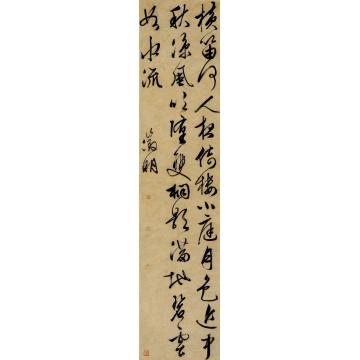 横笛何人夜倚楼小庭月色近中
秋凉风吹堕双桐影满地碧云
如水流
徵明